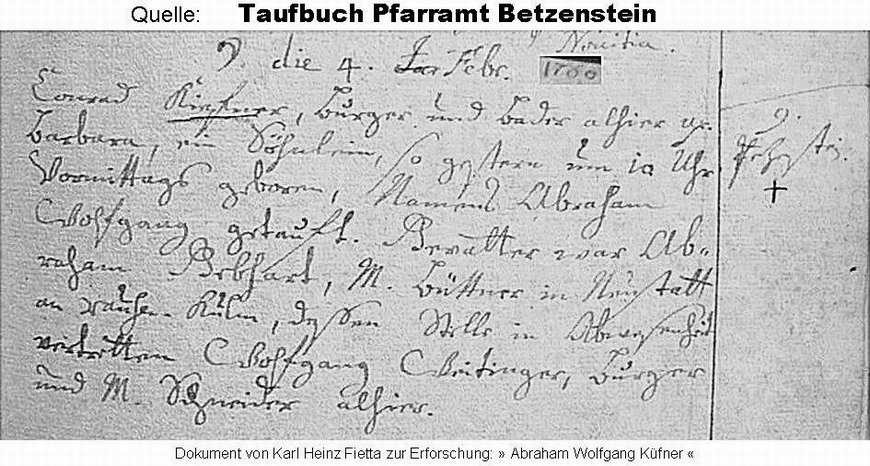 Quelle: Taufbuch Pfarramt Betzenstein
9. die 4. Febr. 1700
Conrad Kieffner, burger und bader alhier
barbara, ein Söhnlein, so gestern um 10 Uhr
Vormittags geboren, Namens Abraham
Wolfgang getauft. Gevatter war Ab-
raham Gebhart, M. büttner in Neustatt
am rauhen Kulm, dessen Stelle in Abwesenheit
vertretten Wolfgang Weitinger, burger
und M. Schneider alhier.
9.
+
Dokument von Karl Heinz Fietta zur Erforschung: » Abraham Wolfgang Küfner «